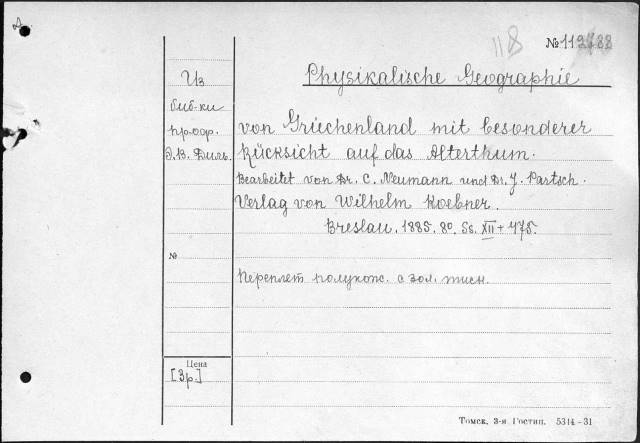 118
№ 112788
Из
биб-ки
проф.
Э.В. Диль.
Physikalische Geographie
von Griechenland mit besonderer
Rücksicht auf das Alterthum.
Bearbeitet von Dr. C. Neumann und Dr. J. Partsch.
Verlag von Wilhelm Koebner.
Breslau. 1885. 8o. Ss. XII + 475.
№
Переплет полукож. с зол. тисн.
Цена
[3р.]
Томск, 3-я Гостип. 5314-31